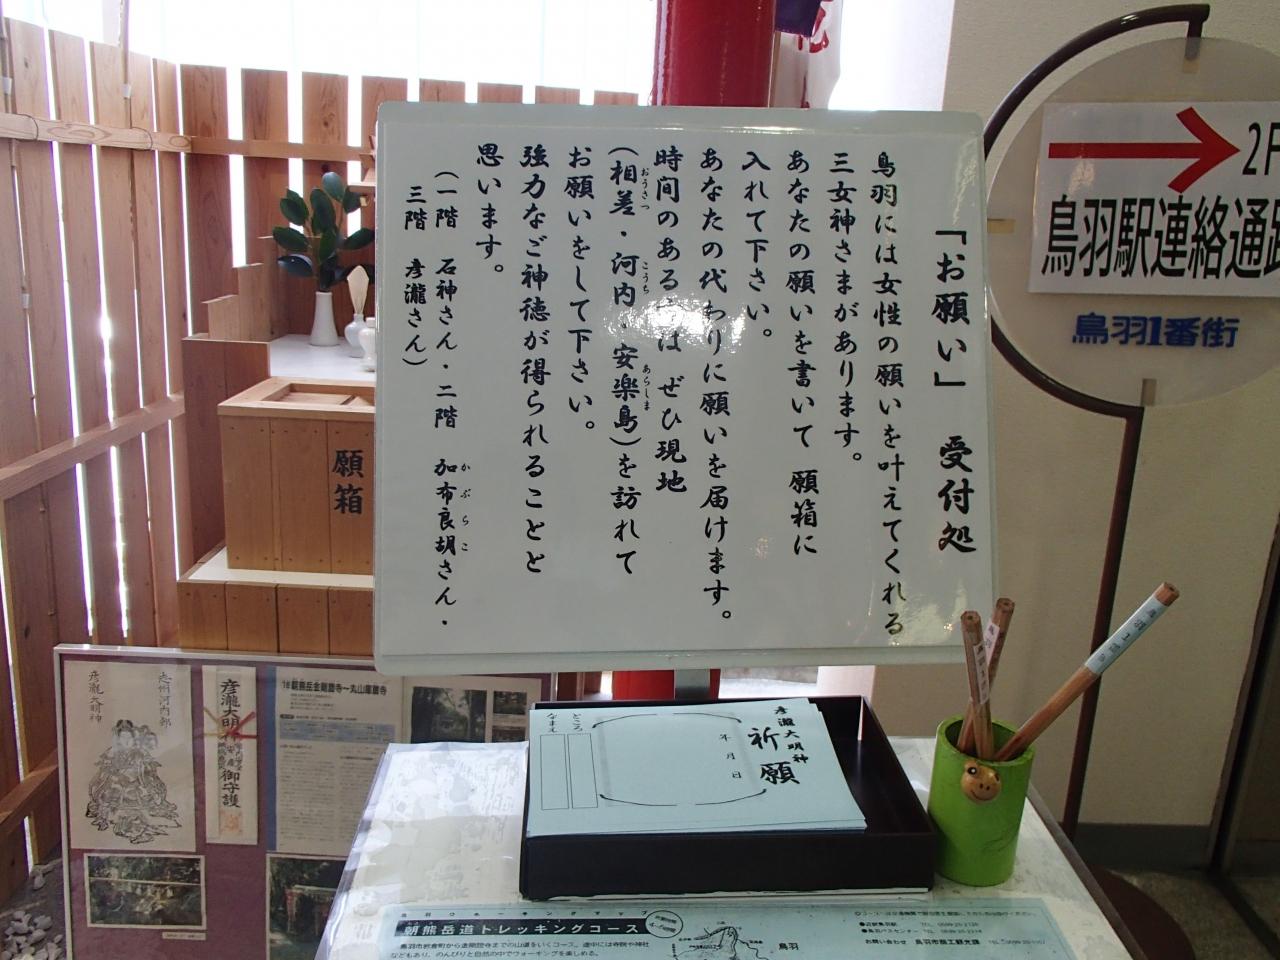 「お願い」 受付処
鳥羽には女性の願いを叶えてくれる
三女神さまがあります。
あなたの願いを書いて 願箱に
入れて下さい。
あなたの代わりに願いを届けます。
時間のある方は ぜひ現地
(相差・河内・安楽島)を訪れて
おうさつ
こうち
あらしま
お願いをして下さい。
強力なご神徳が得られることと
思います。
(一階 石神さん・二階 加布良胡さん・
かぶらこ
三階 彦瀧さん)
2F
鳥羽駅連絡通路
鳥羽1番街
願箱
彦瀧大明神
祈願
年 月 日
ところ
なまえ
彦瀧大明神
志州河内郷
彦瀧大明神
安産
御守護
朝熊岳金剛證寺〜丸山庫蔵寺
鳥羽ウォーキングマップ
朝熊岳道トレッキングコース
鳥羽